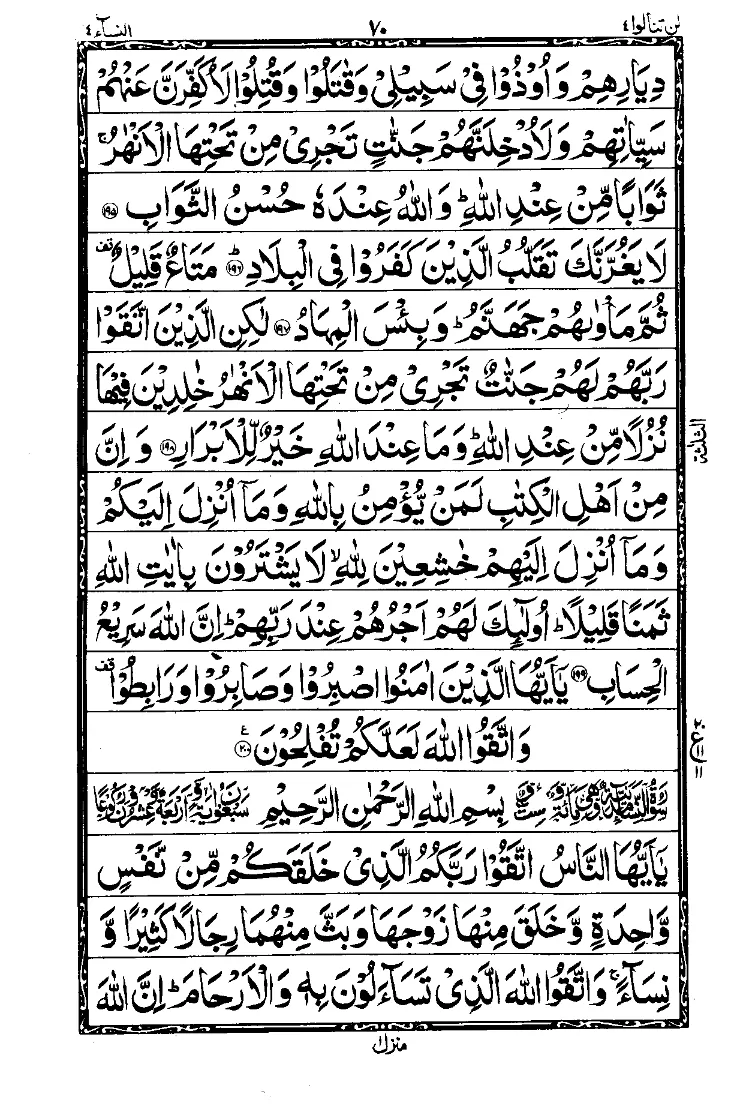 لن تنالوا ٤
٧٠
النسآء ٤
دِيَارِهِمْ وَاُوْذُوْا فِىْ سَبِيْلِىْ وَقٰتَلُوْا وَقُتِلُوْا لَاُكَفِّرَنَّ عَنْهُمْ
سَيِّاٰتِهِمْ وَلَاُدْخِلَنَّهُمْ جَنّٰتٍ تَجْرِىْ مِنْ تَحْتِهَا الْاَنْهٰرُ ۚ
ثَوَابًا مِّنْ عِنْدِ اللّٰهِ ؕ وَاللّٰهُ عِنْدَهٗ حُسْنُ الثَّوَابِ ﴿۱۹۵﴾
لَا يَغُرَّنَّكَ تَقَلُّبُ الَّذِيْنَ كَفَرُوْا فِى الْبِلَادِ ؕ ﴿۱۹۶﴾ مَتَاعٌ قَلِيْلٌ قف
ثُمَّ مَاْوٰىهُمْ جَهَنَّمُ ؕ وَبِئْسَ الْمِهَادُ ﴿۱۹۷﴾ لٰكِنِ الَّذِيْنَ اتَّقَوْا
رَبَّهُمْ لَهُمْ جَنّٰتٌ تَجْرِىْ مِنْ تَحْتِهَا الْاَنْهٰرُ خٰلِدِيْنَ فِيْهَا
نُزُلًا مِّنْ عِنْدِ اللّٰهِ ؕ وَمَا عِنْدَ اللّٰهِ خَيْرٌ لِّلْاَبْرَارِ ﴿۱۹۸﴾ وَاِنَّ
الثلثة
مِنْ اَهْلِ الْكِتٰبِ لَمَنْ يُّؤْمِنُ بِاللّٰهِ وَمَاۤ اُنْزِلَ اِلَيْكُمْ
وَمَاۤ اُنْزِلَ اِلَيْهِمْ خٰشِعِيْنَ لِلّٰهِ ۙ لَا يَشْتَرُوْنَ بِاٰيٰتِ اللّٰهِ
ثَمَنًا قَلِيْلًا ؕ اُولٰٓئِكَ لَهُمْ اَجْرُهُمْ عِنْدَ رَبِّهِمْ ؕ اِنَّ اللّٰهَ سَرِيْعُ
الْحِسَابِ ﴿۱۹۹﴾ يٰۤاَيُّهَا الَّذِيْنَ اٰمَنُوا اصْبِرُوْا وَصَابِرُوْا وَرَابِطُوْا قف
وَاتَّقُوا اللّٰهَ لَعَلَّكُمْ تُفْلِحُوْنَ ﴿۲۰۰﴾ ع
٢٠
ع ١١
١١
بِسْمِ اللّٰهِ الرَّحْمٰنِ الرَّحِيْمِ
يٰۤاَيُّهَا النَّاسُ اتَّقُوْا رَبَّكُمُ الَّذِىْ خَلَقَكُمْ مِّنْ نَّفْسٍ
وَّاحِدَةٍ وَّخَلَقَ مِنْهَا زَوْجَهَا وَبَثَّ مِنْهُمَا رِجَالًا كَثِيْرًا وَّ
نِسَآءً ۚ وَاتَّقُوا اللّٰهَ الَّذِىْ تَسَآءَلُوْنَ بِهٖ وَالْاَرْحَامَ ؕ اِنَّ اللّٰهَ
منزل ١